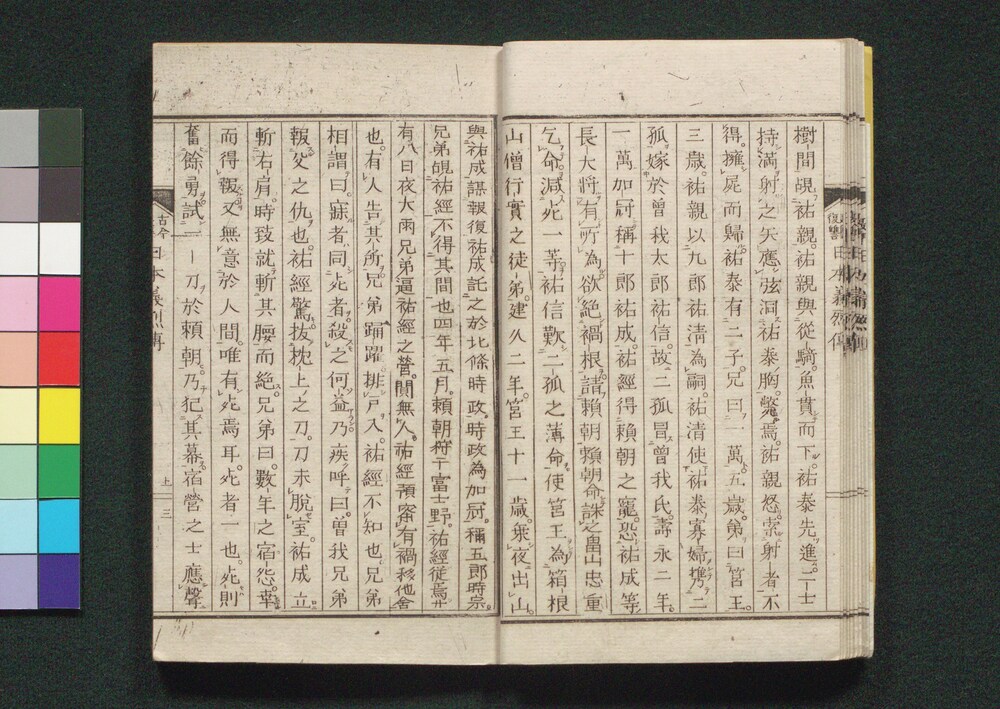 樹間覘祐親。祐親與從騎。魚貫而下。祐泰先進。二士
持滿射之矢應弦洞祐泰胸。斃焉。祐親怒。索射者不
得。擁屍而歸。祐泰有二子。兄曰一萬五歲。弟曰筥王。
三歲。祐親以九郎祐清為嗣。祐清使祐泰寡婦攜二
孤。嫁於曾我太郎祐信。故二孤冒曾我氏。壽永二年。
一萬加冠稱十郎祐成。祐經得賴朝之寵。恐祐成等
長大將有所為。欲絕禍根。請賴朝。賴朝命誅之。畠山忠重
乞命。減死一等。祐信歎二孤之薄命。使筥王為箱根
山僧行實之徒弟。建久二年。筥王十一歲。乘夜出山。
與祐成謀報復。祐成託之於北條時政。時政為加冠。稱五郎時宗。
兄弟覘祐經不得其間也。四年五月。賴朝狩于富士野。祐經從焉。廿
有八日夜大雨。兄弟逼祐經之營。閴無人。祐經預察有禍。移他舍
也。有人告其所。兄弟踊躍排戶入。祐經不知也。兄弟
相謂曰。寐者同死者。殺之何益。乃疾呼曰。曽我兄弟
報父之仇也。祐經驚。拔枕上之刀。刀未脫室。祐成立
斬右肩。時致就斬其腰而絕。兄弟曰。數年之宿怨。幸
而得報。又無意於人間。唯有死焉耳。死者一也。死則
奮餘勇。試一刀於賴朝。乃犯其幕。宿營之士應聲
古今
日本義烈傳
上
三
復讐
日本義烈傳